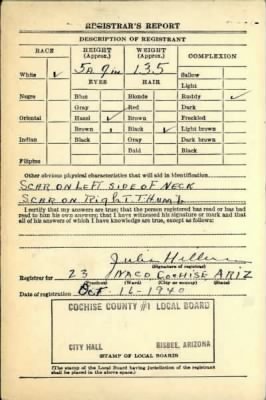 REGISTRAR'S REPORT
DESCRIPTION OF REGISTRANT
RACE
HEIGHT (Approx.)
WEIGHT (Approx.)
COMPLEXION
White ✓
5 ft 9 in
135
Sallow
Light
EYES
HAIR
Negro
Blue
Blonde
Ruddy ✓
Gray
Red
Dark
Oriental
Hazel ✓
Brown
Freckled
Brown
Black ✓
Light brown
Indian
Black
Gray
Dark brown
Bald
Black
Filipino
Other obvious physical characteristics that will aid in identification
SCAR ON LEFT SIDE OF NECK
SCAR ON RIGHT THUMB
I certify that my answers are true; that the person registered has read or has had
read to him his own answers; that I have witnessed his signature or mark and that
all of his answers of which I have knowledge are true, except as follows:
(Signature of registrar)
Registrar for 23 NACO COCHISE ARIZ
(Precinct) (Ward) (City or County) (State)
Date of registration Oct 16-1940
COCHISE COUNTY #1 LOCAL BOARD
CITY HALL BISBEE, ARIZONA
STAMP OF LOCAL BOARD
(The stamp of the Local Board having jurisdiction of the registrant
shall be placed in the above space.)